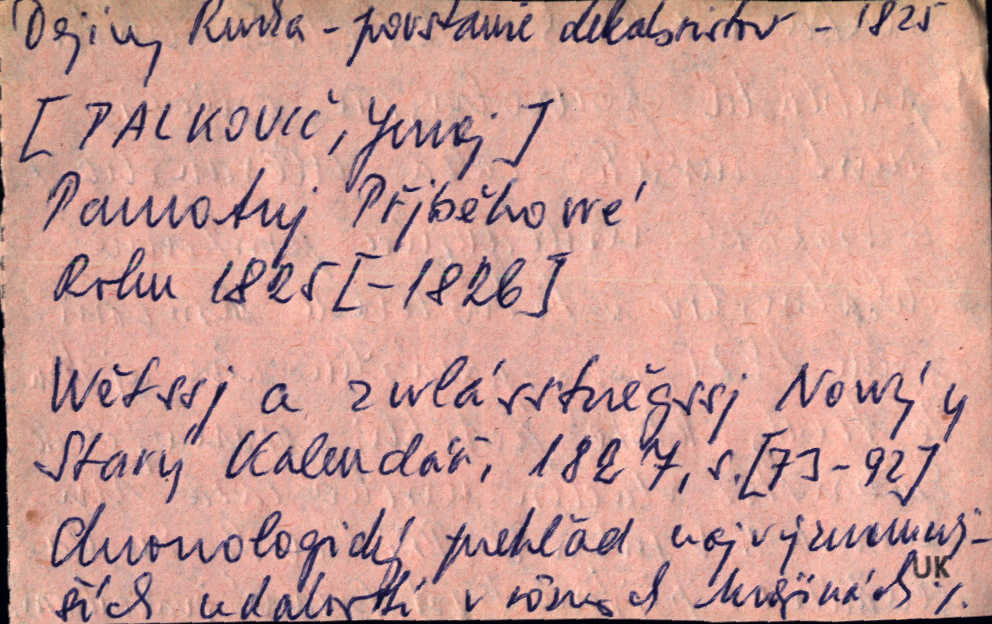 Dejiny Ruska - povstanie dekabristov - 1825
[PALKOVIČ, Juraj]
Pamatnj Přjběhowé
Roku 1825 [-1826]
Wětssj a zwlásstněgssj Nowý y
Starý Kalendář, 1827, s. [73-92]
Chronologický prehľad najvýznamnej-
ších udalostí v rôznych krajinách ./.
UK